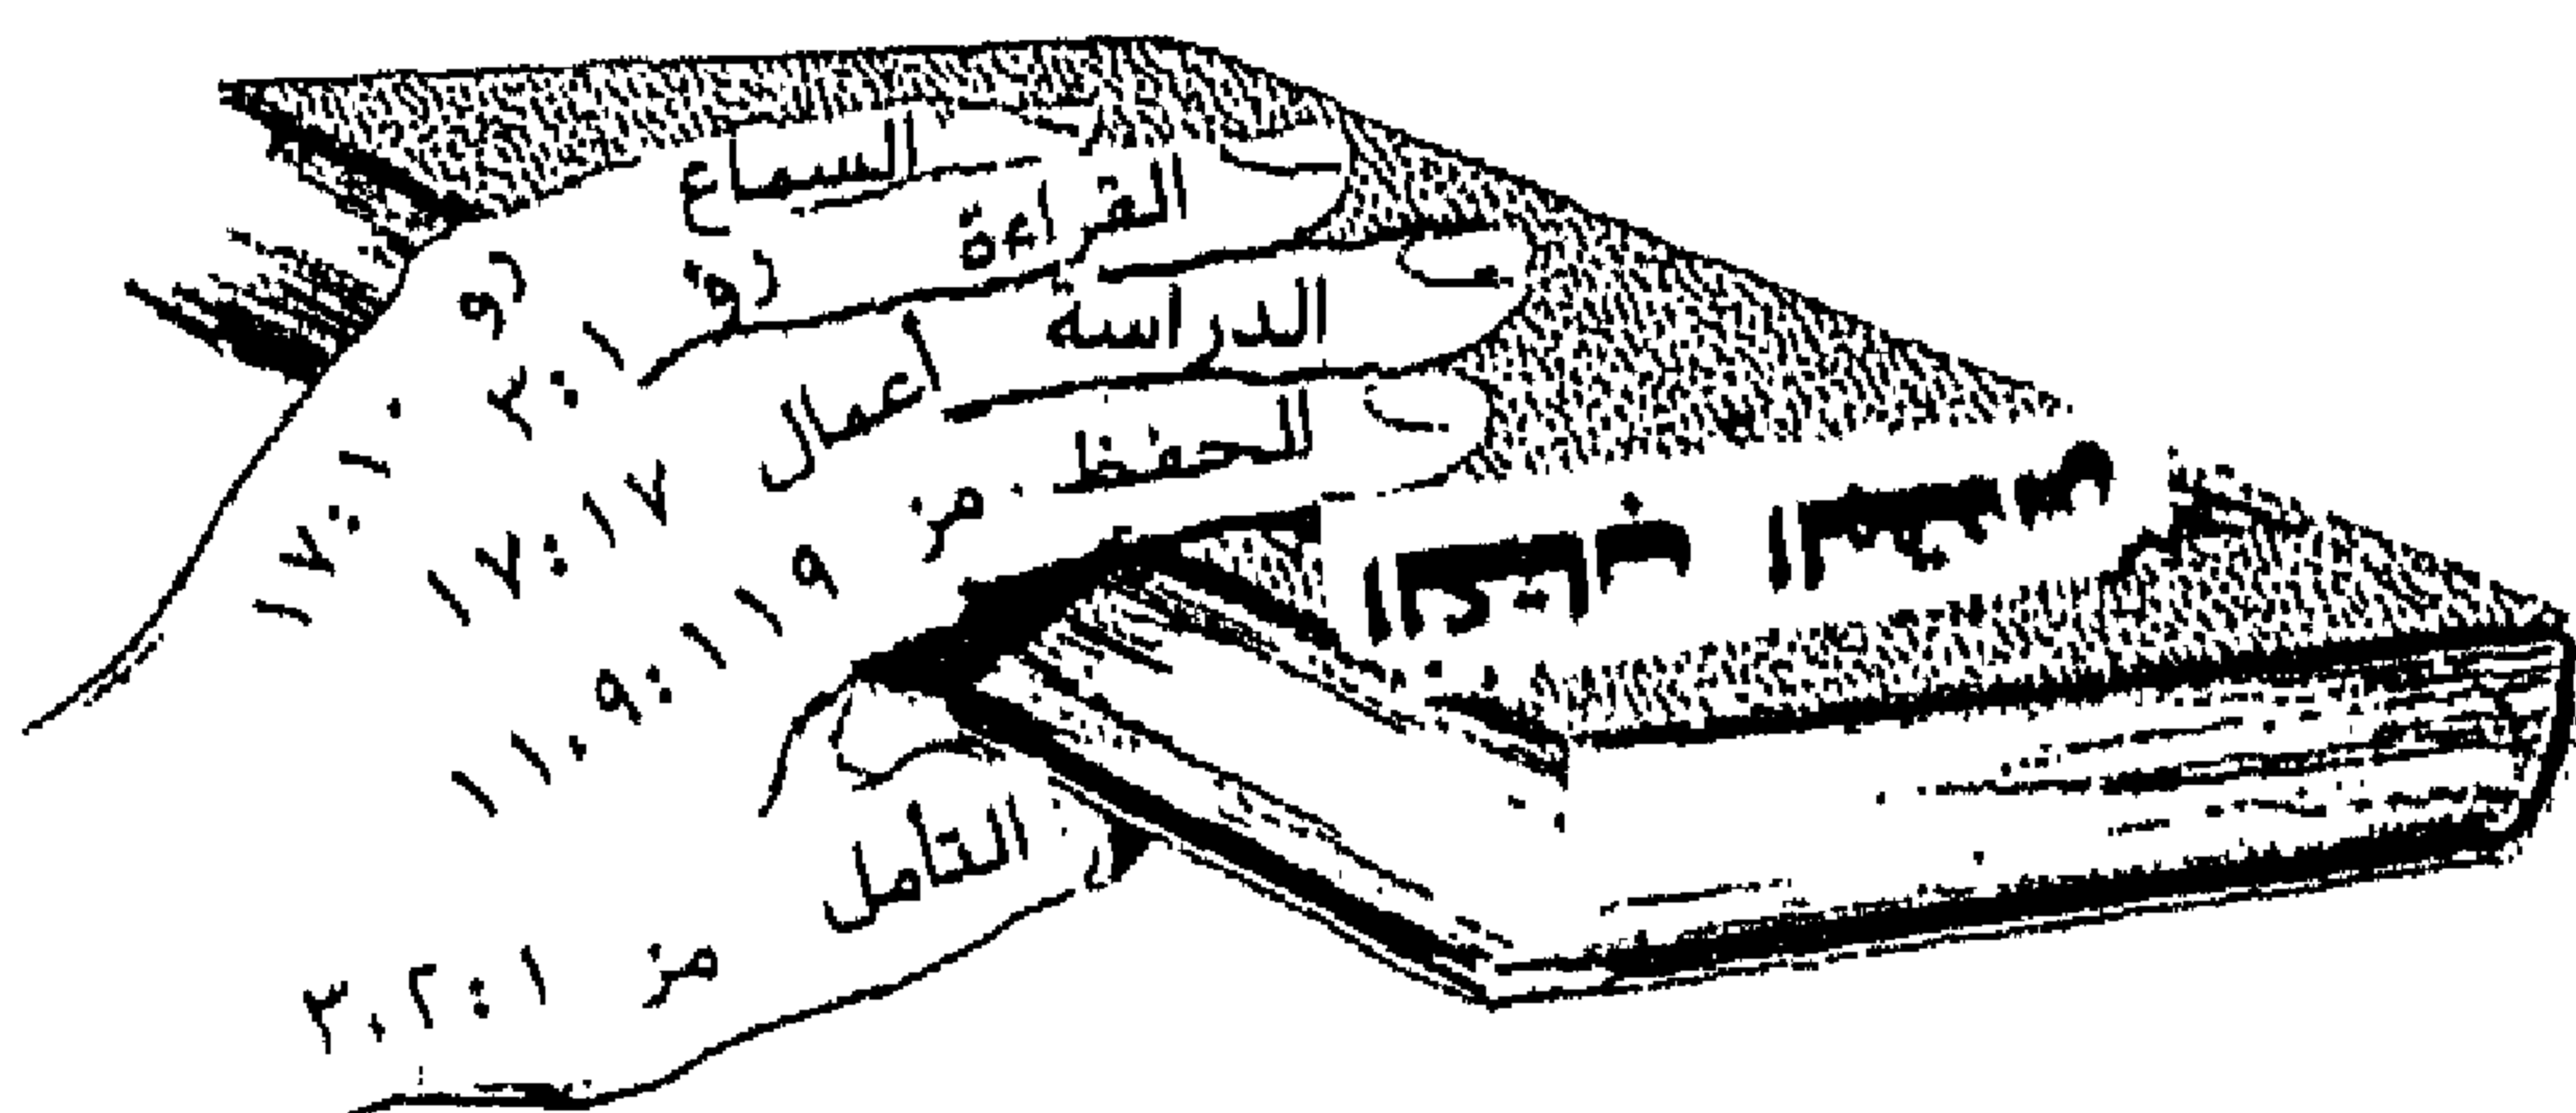 السماع رو ١٠:١٧
القراءة رؤ ١:٣
الدراسة أعمال ١٧:١٧
الحفظ مز ١١٩:٩،١١
التأمل مز ١:٢،٣